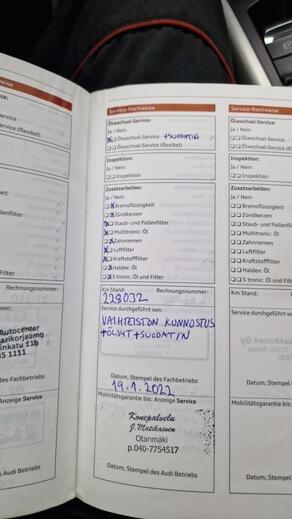 Service-Nachweise
Ölwechsel-Service:
Ja / Nein
Ölwechsel-Service +SUODATIN
Ölwechsel-Service (flexibel)
Inspektion:
Ja / Nein
Inspektion
Zusatzarbeiten:
Ja / Nein
Bremsflüssigkeit
Zündkerzen
Staub- und Pollenfilter
Multitronic: Öl
Zahnriemen
Luftfilter
Kraftstofffilter
Haldex: Öl
S tronic: Öl und Filter
Km Stand: Rechnungsnummer:
228032
Service durchgeführt von:
VAIHTEISTON KUNNOSTUS
+ÖLJYT+SUODATIN
Datum, Stempel des Fachbetriebs
19.1.2022
Mobilitätsgarantie bis: Anzeige Service
Konepalvelu
J. Matikainen
Otanmäki
p.040-7754517
Datum, Stempel des Audi Betriebs
Service-Nachweise
Ölwechsel-Service:
Ja / Nein
Ölwechsel-Service
Ölwechsel-Service
Inspektion:
Ja / Nein
Inspektion
Zusatzarbeiten:
Ja / Nein
Bremsflüssigkeit
Zündkerzen
Staub- und Pollenfilter
Multitronic: Öl
Zahnriemen
Luftfilter
Kraftstofffilter
Haldex: Öl
S tronic: Öl und Filter
Km Stand:
Service durchgeführt
Datum, Stempel
Mobilitätsgarantie
Datum, Stempel